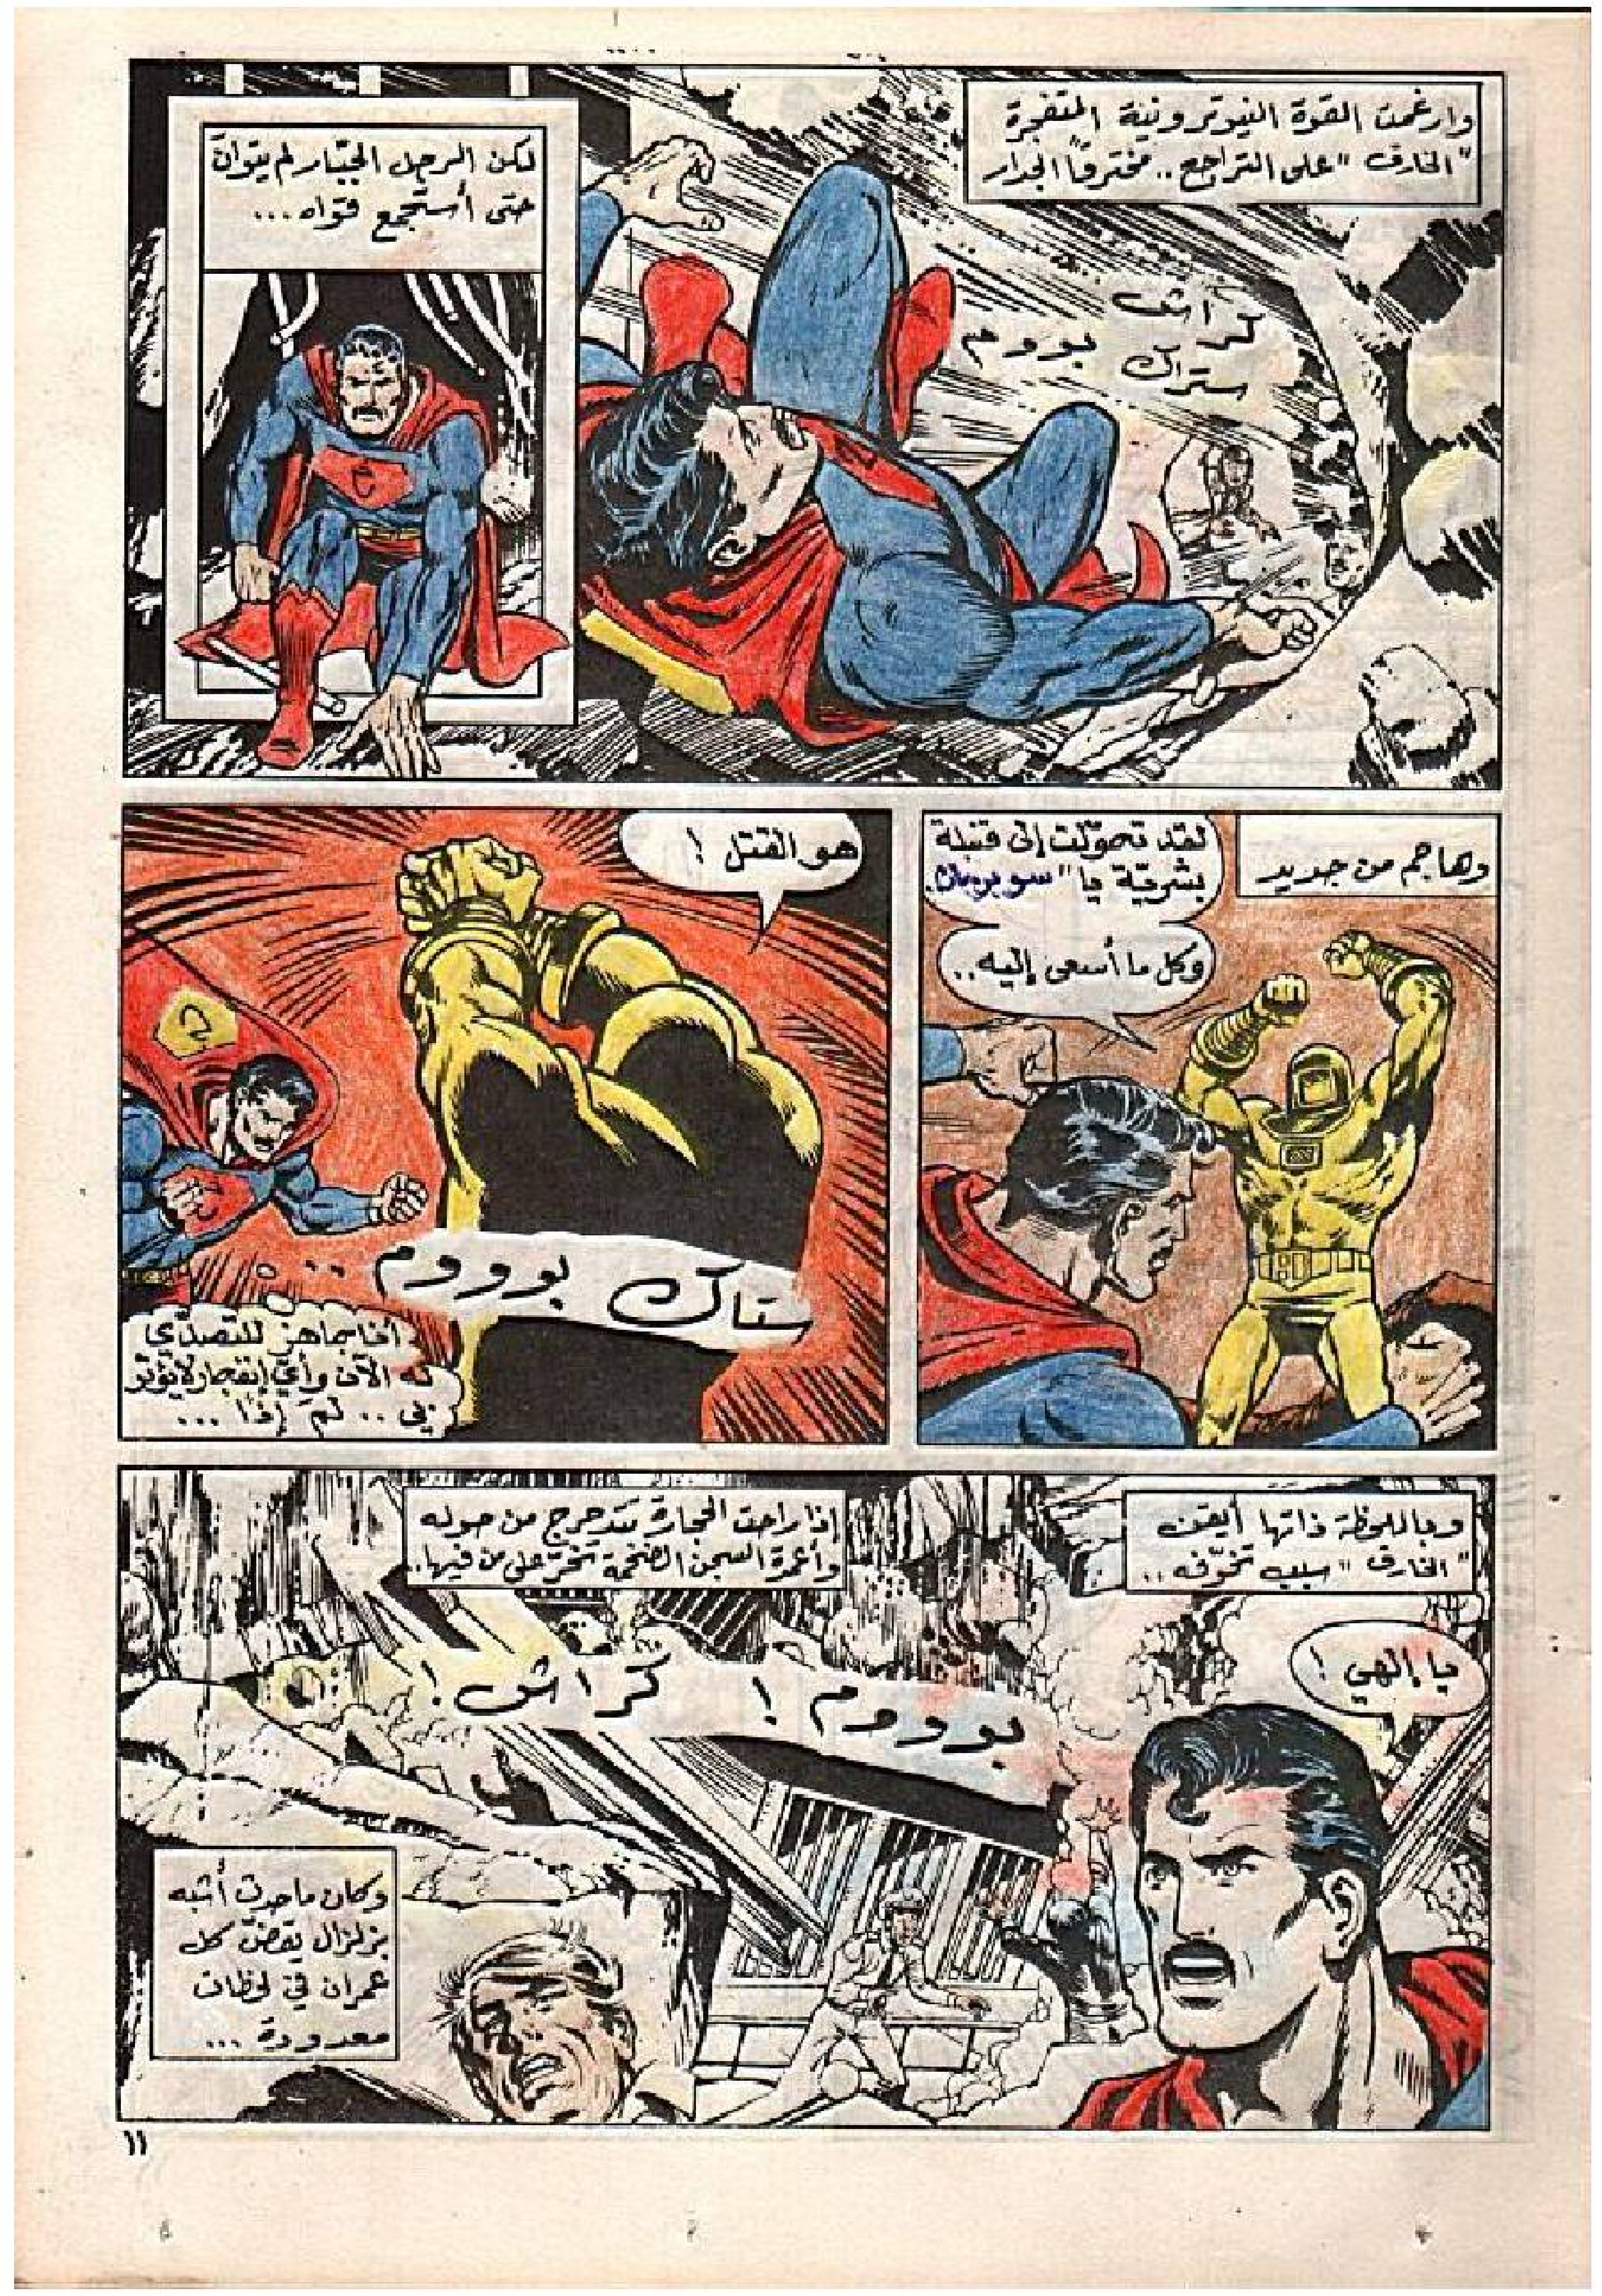 وارغمت القوة النيوترونية المتفجرة
"الخارق" على التراجع.. مخترقاً الجدار
كراش
ستراك بوووم
لكن الرجل الجبّار لم يتوانَ
حتى أستجمع قواه...
وهاجم من جديد
لقد تحوّلت إلى قنبلة
بشريّة يا "سوبرمان"
وكل ما أسعى إليه..
هو القتل!
ستاك بوووم..
أنا جاهز للتصدّي
له الآن وأيّ إنفجار لا يؤثر
بي.. لمَ إذاً...
وباللحظة ذاتها أيقن
"الخارق" سبب تخوّفه..
إذا راحت الحجارة تتدحرج من حوله
وأعمدة السجن الضخمة تخرّ على من فيها..
يا إلهي!
بوووم! كراش!
وكان ما حدث أشبه
بزلزال يقضّ كل
عمران في لحظات
معدودة...
١١